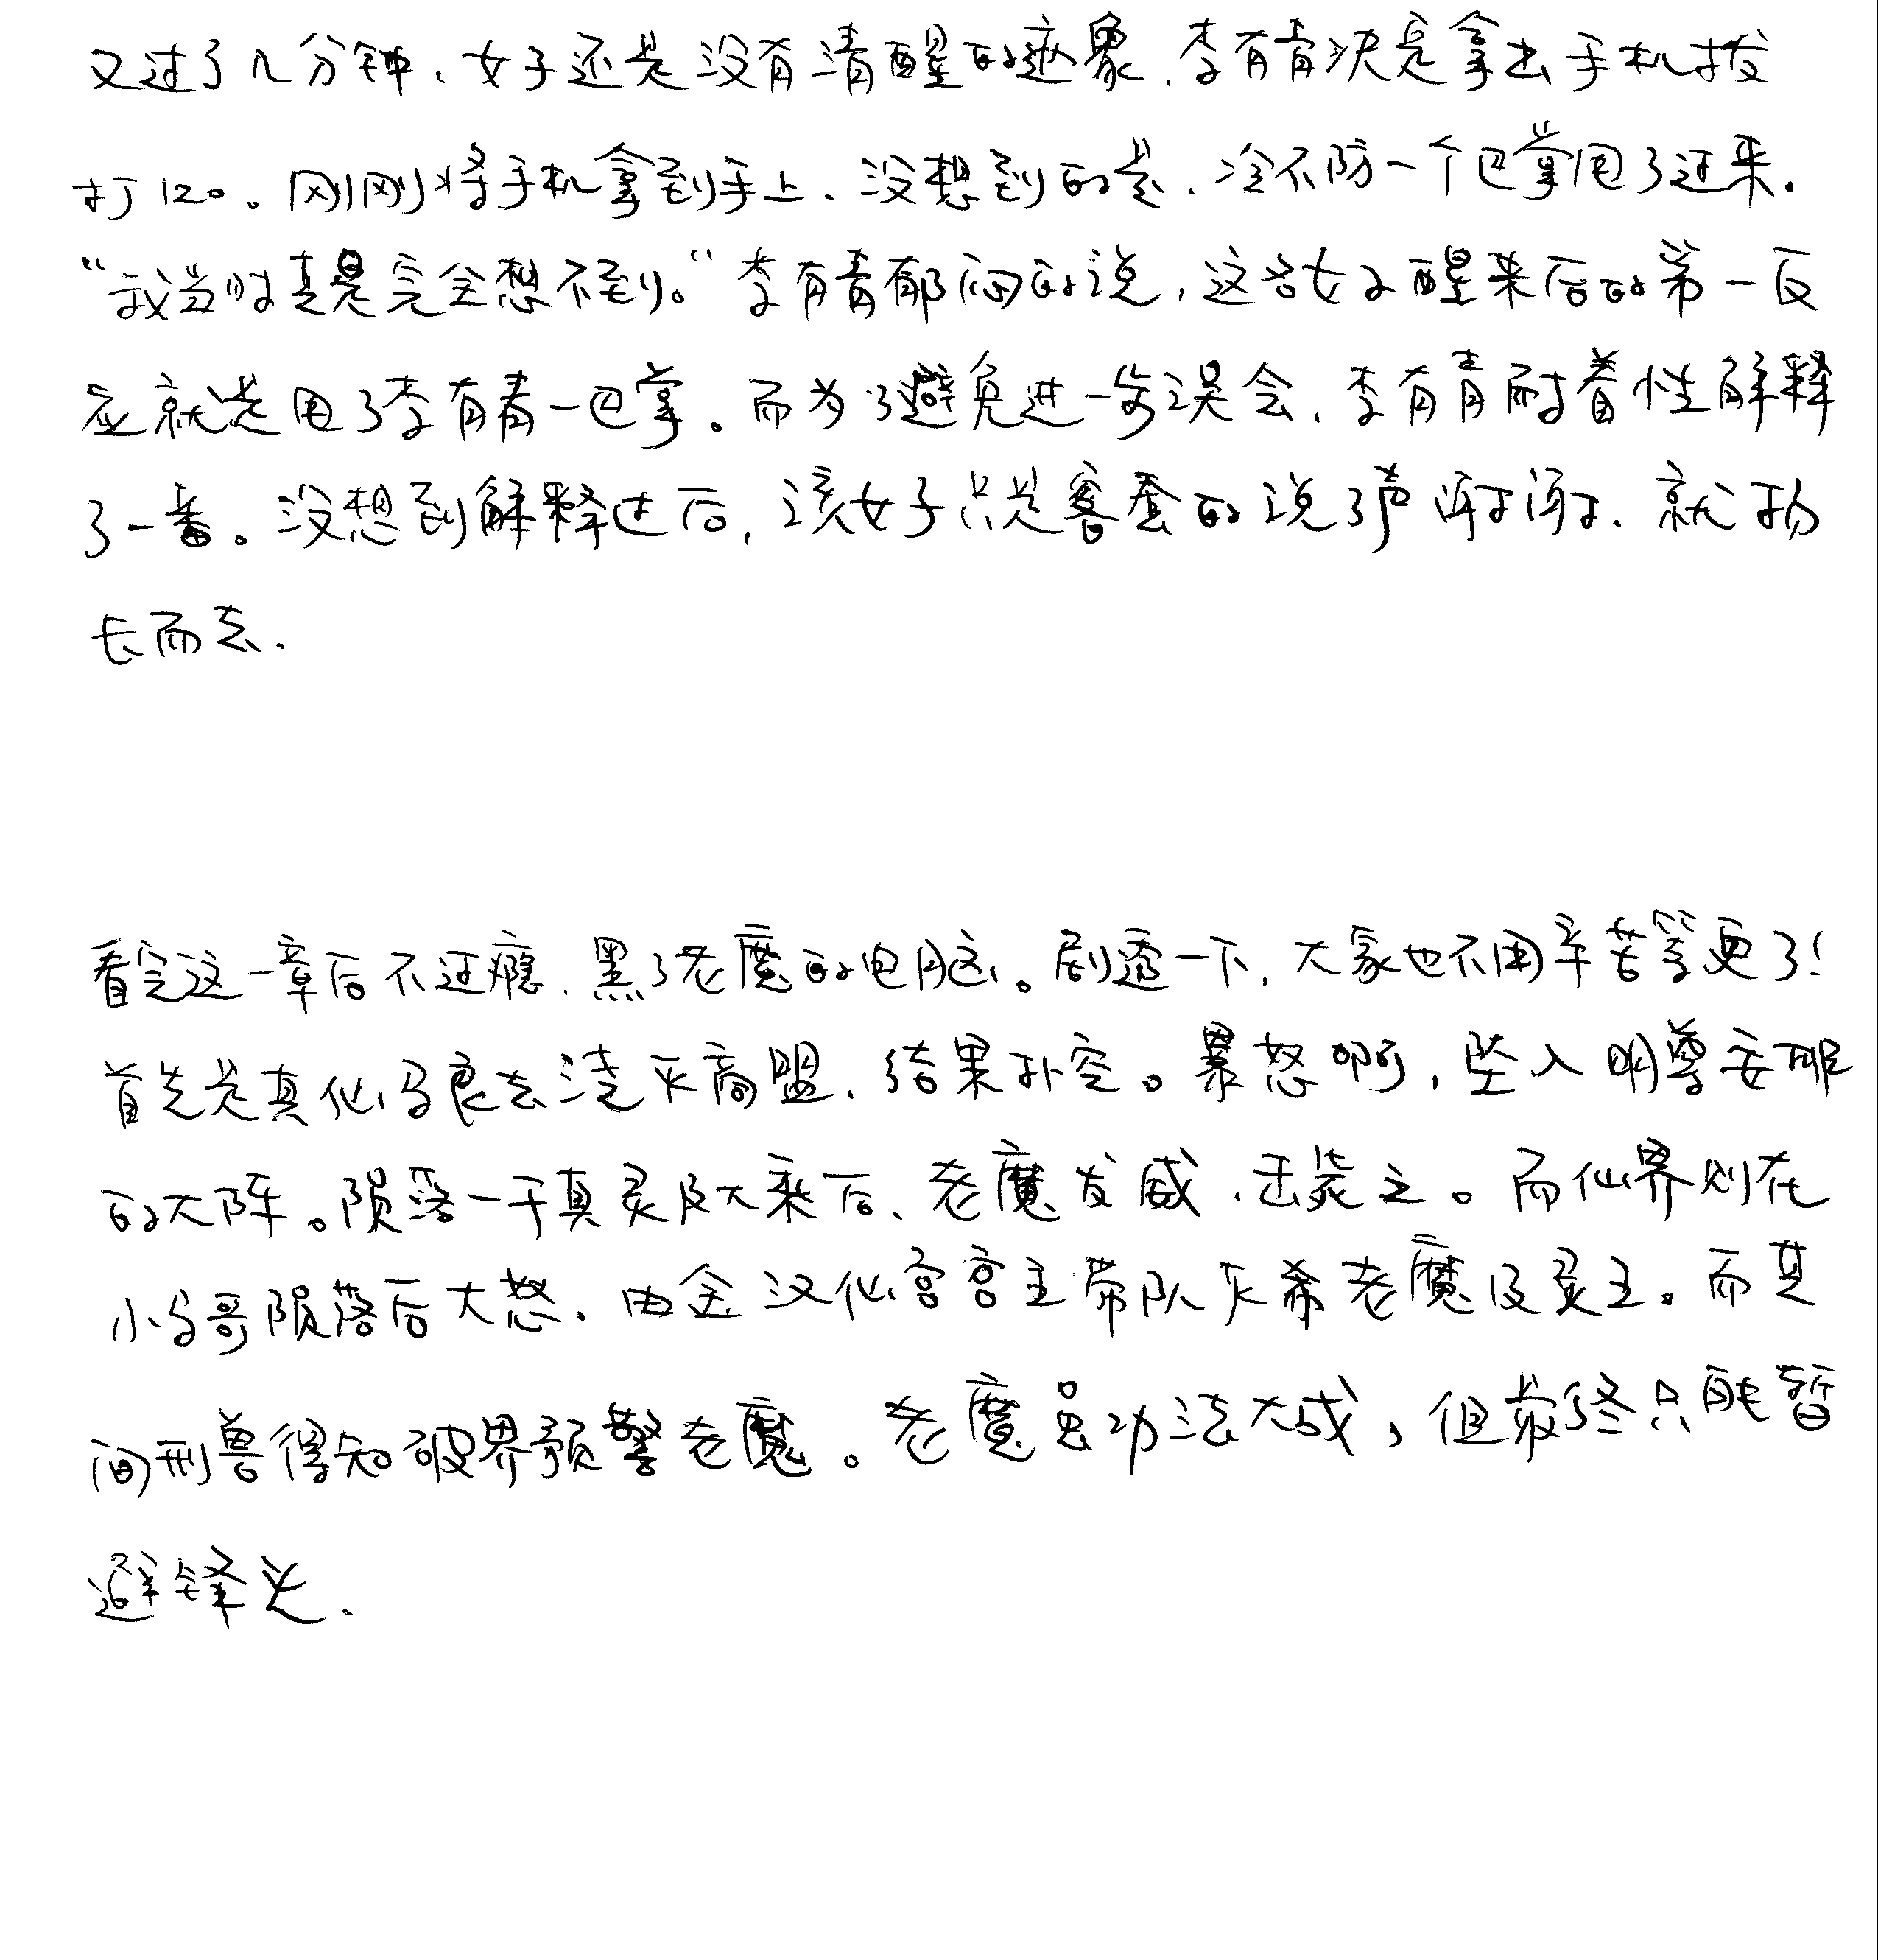 又过了几分钟、女子还是没有清醒的迹象,李有青决定拿出手机拨
打120。刚刚将手机拿到手上、没想到的是,冷不防一个巴掌甩了过来.
“我当时真是完全想不到。”李有青郁闷的说,这名女子醒来后的第一反
应就是甩了李有青一巴掌。而为了避免进一步误会,李有青耐着性解释
了一番。没想到解释过后,该女子只是客套的说了声谢谢、就扬
长而去.
看完这一章后不过瘾,黑了老魔的电脑。剧透一下,大家也不用辛苦等更了!
首先是真仙马良去浇灭商盟,结果扑空。暴怒啊,坠入明尊安排
的大阵。陨落一干真灵及大乘后、老魔发威,击毙之。而仙界则在
小马哥陨落后大怒.由金汉仙宫宫主带队灭杀老魔及灵王。而其
间刑兽得知破界预警老魔。老魔虽功法大成,但最终只能暂
避锋芒.